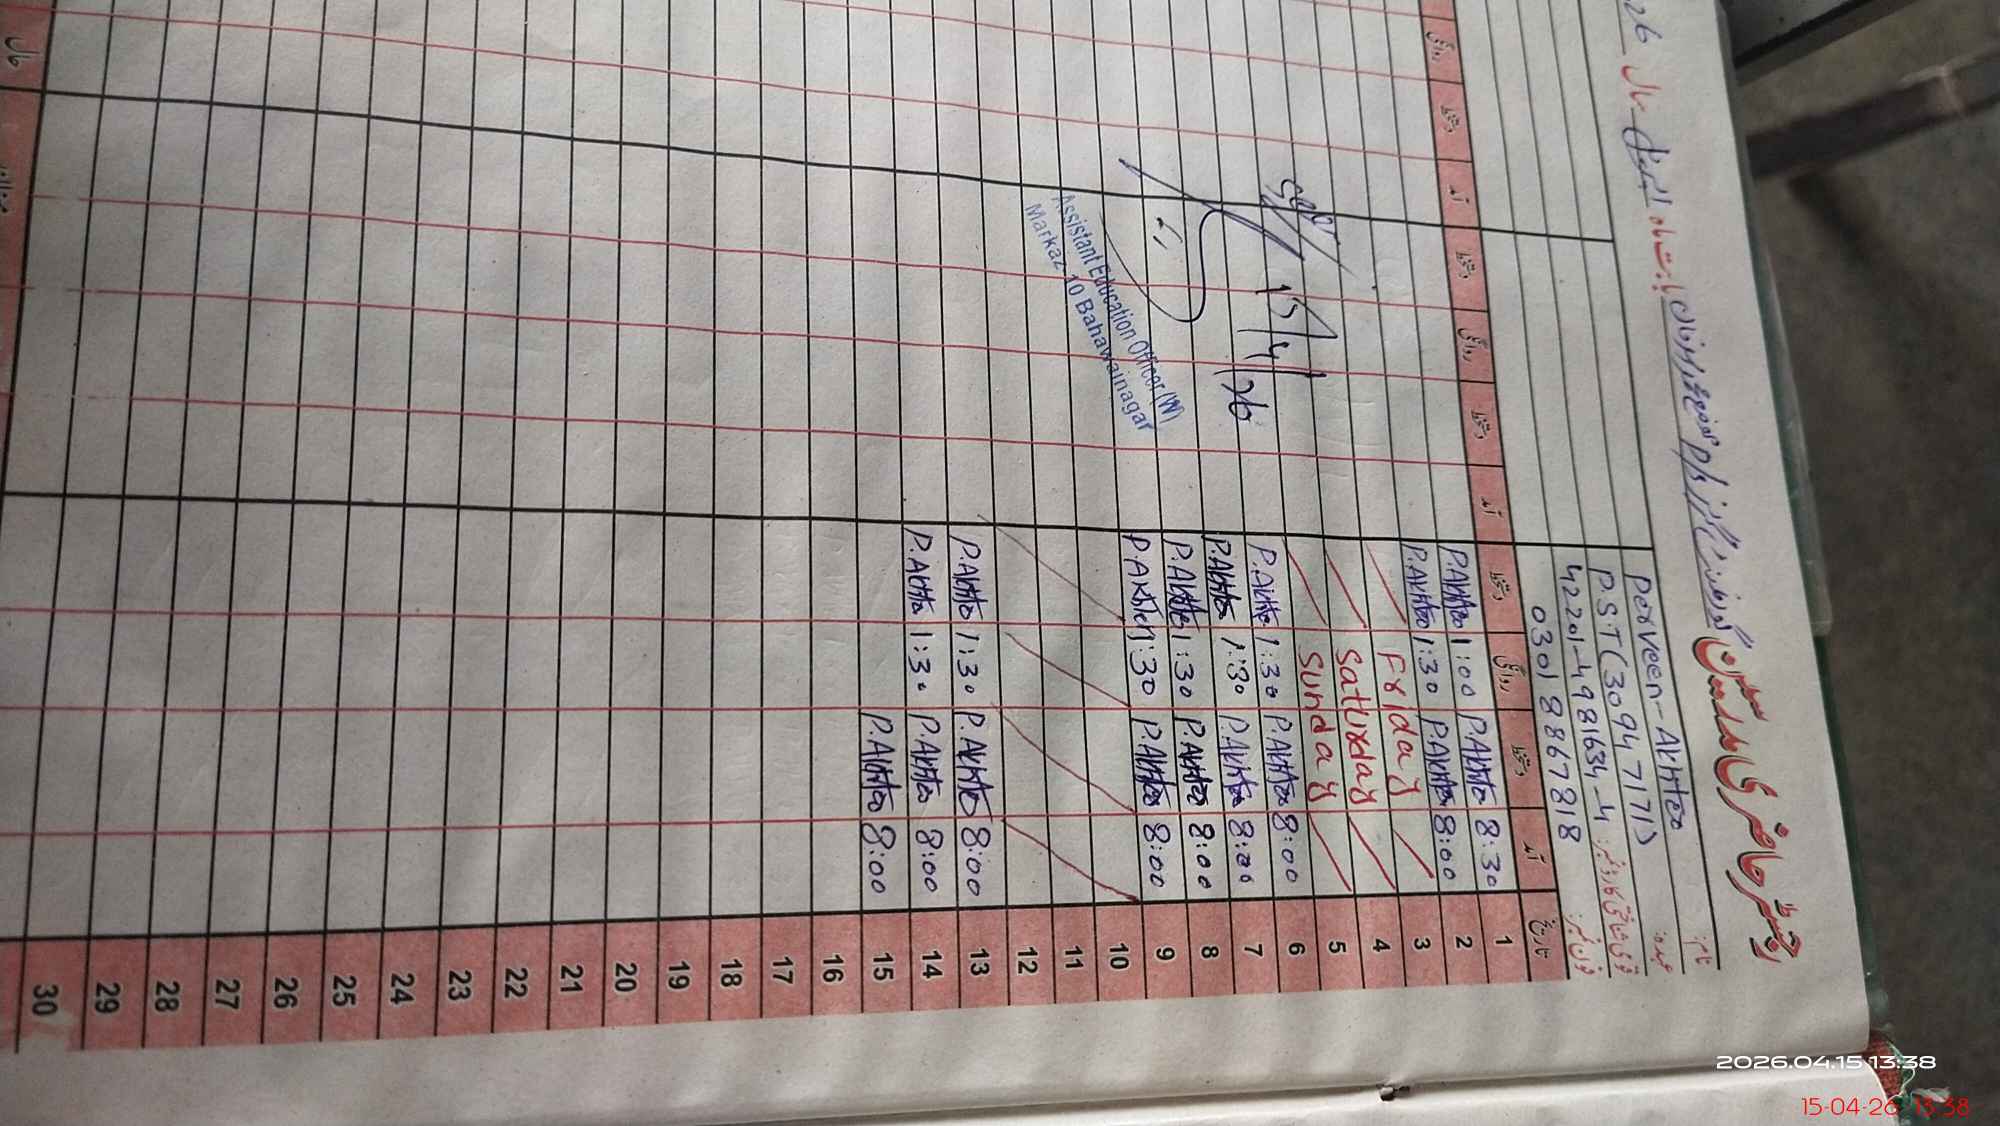 رجسٹر حاضری مدرسین
بابت ماہ اپریل سال
نام: Perveen-Akhter
عہدہ: P.S.T (30947171)
قومی شناختی کارڈ نمبر: 42201-4981634-4
فون نمبر: 03018867818
تاریخ آمد دستخط روانگی دستخط آمد دستخط روانگی دستخط آمد دستخط روانگی
1 8:30 P.Akhter 1:00 P.Akhter
2 8:00 P.Akhter 1:30 P.Akhter
3 Friday
4 Saturday
5 Sunday
6 8:00 P.Akhter 1:30 P.Akhter
7 8:00 P.Akhter 1:30 P.Akhter
8 8:00 P.Akhter 1:30 P.Akhter
9 8:00 P.Akhter 1:30 P.Akhter
10
11
12
13 8:00 P.Akhter 1:30 P.Akhter
14 8:00 P.Akhter 1:30 P.Akhter
15 8:00 P.Akhter
16
17
18
19
20
21
22
23
24
25
26
27
28
29
30
15/4/26
Assistant Education Officer (W)
Markaz 10 Bahawalnagar
2026.04.15 13:38
15-04-26 13:38